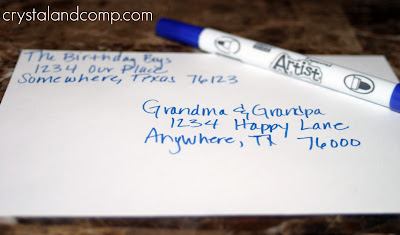 crystalandcomp.com
The Birthday Boys
1234 Our Place
Somewhere, Texas 76123
Artist
Grandma & Grandpa
1234 Happy Lane
Anywhere, TX 76000